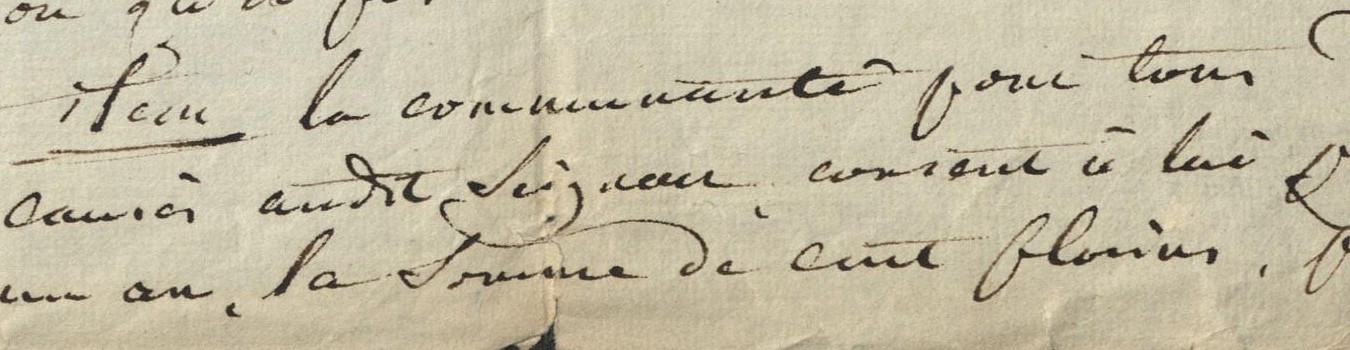 ou qu'il
item la communauté pour tous
causés audit Seigneur, consent à lui
un an, la Somme de cent florins,